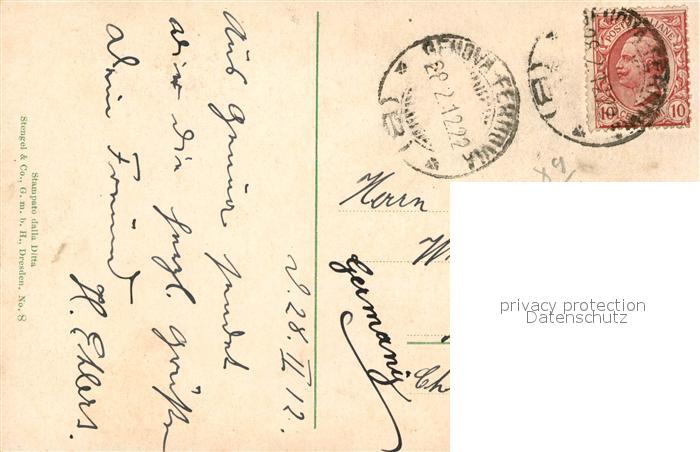 Aus Genua sendet
Dir die herzl. Grüße
Dein Freund
H. Ehlers.
d. 28. II 12.
Stampato dalla Ditta
Stengel & Co., G. m. b. H., Dresden. No. 8
GENOVA FERROVIA
28 2 12 22
POSTE ITALIANE
10 10
Herrn
W
Germany
Ch
privacy protection
Datenschutz